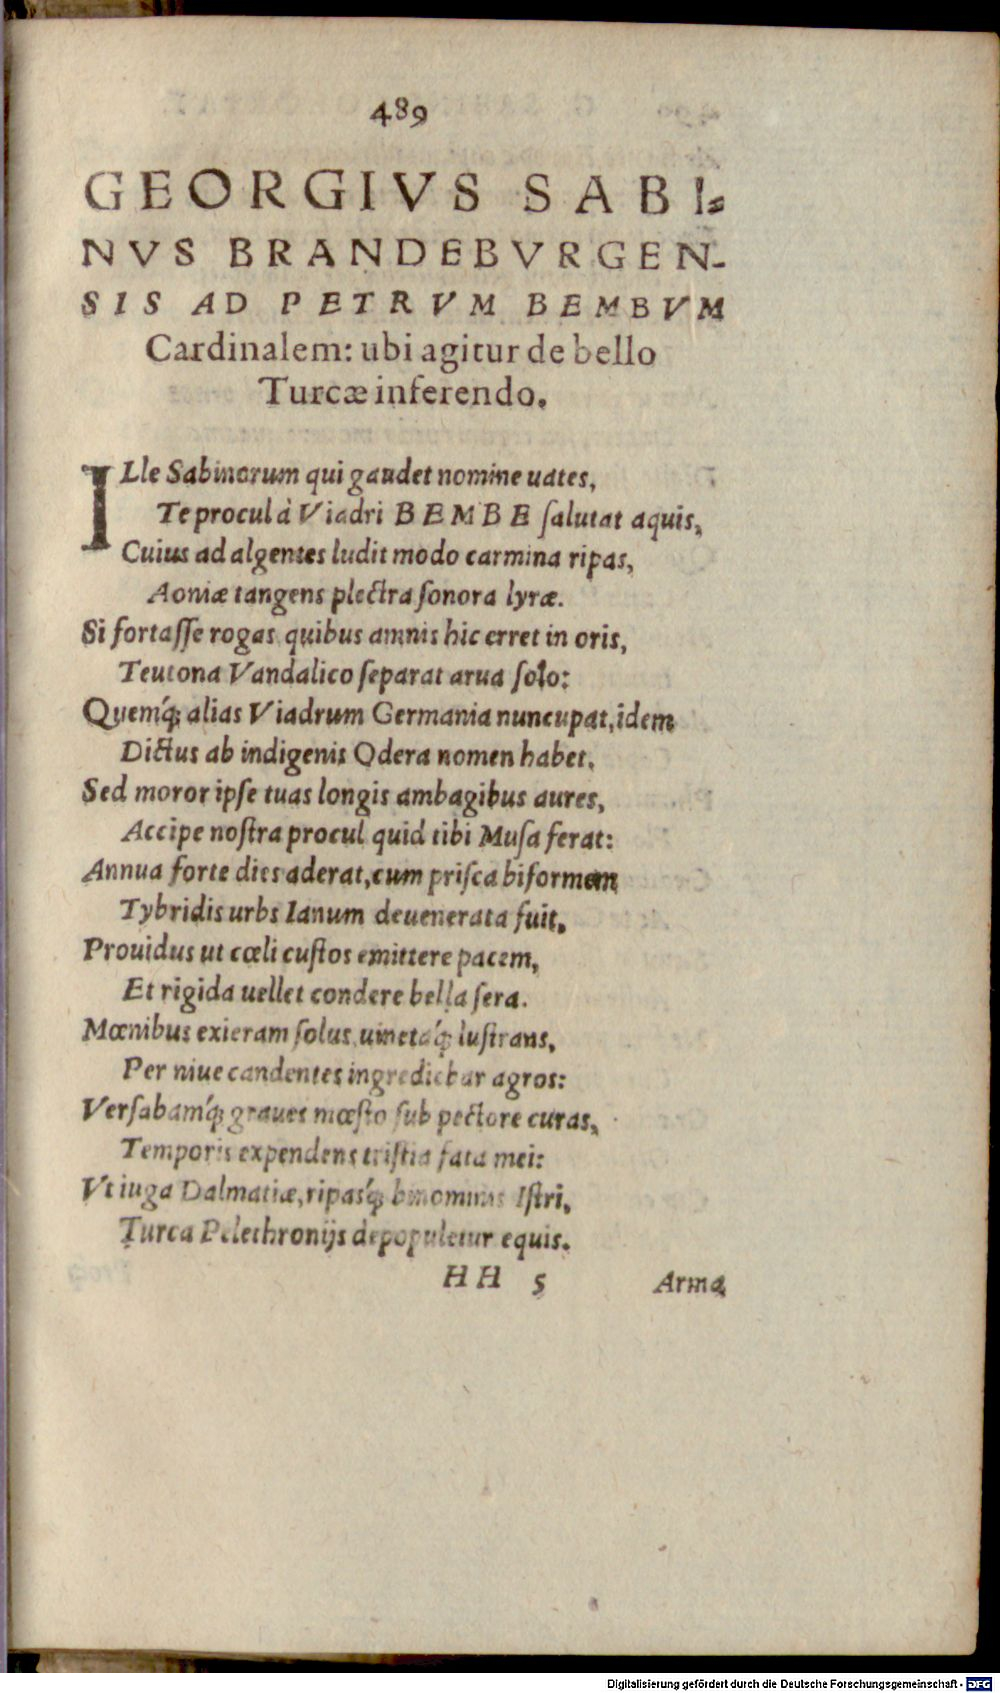 489
GEORGIVS SABI⸗
NVS BRANDEBVRGEN-
SIS AD PETRVM BEMBVM
Cardinalem: ubi agitur de bello
Turcæ inferendo.
ILle Sabinorum qui gaudet nomine uates,
Te procul à Viadri BEMBE ſalutat aquis,
Cuius ad algentes ludit modo carmina ripas,
Aoniæ tangens plectra ſonora lyræ.
Si fortaſſe rogas quibus amnis hic erret in oris,
Teutona Vandalico ſeparat arua ſolo:
Quemq́; alias Viadrum Germania nuncupat, idem
Dictus ab indigenis Odera nomen habet.
Sed moror ipſe tuas longis ambagibus aures,
Accipe noſtra procul quid tibi Muſa ferat:
Annua forte dies aderat, cum priſca biformem
Tybridis urbs Ianum deuenerata fuit,
Prouidus ut cœli cuſtos emittere pacem,
Et rigida uellet condere bella ſera.
Mœnibus exieram ſolus, uinetaq́; luſtrans,
Per niue candentes ingrediebar agros:
Verſabamq́; graues mœſto ſub pectore curas,
Temporis expendens triſtia fata mei:
Vt iuga Dalmatiæ, ripasq́; binominis Iſtri,
Turca Pelethronijs depopuletur equis.
HH 5 Arma
Digitalisierung gefördert durch die Deutsche Forschungsgemeinschaft - DFG